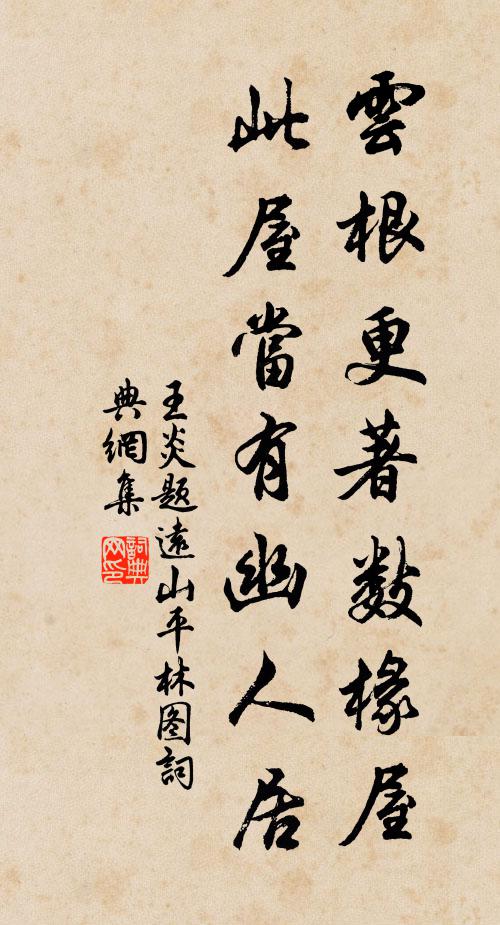 雲根更著數椽屋
此屋當有幽人居
王炎題遠山平林图詞
典網集
詞典
网印